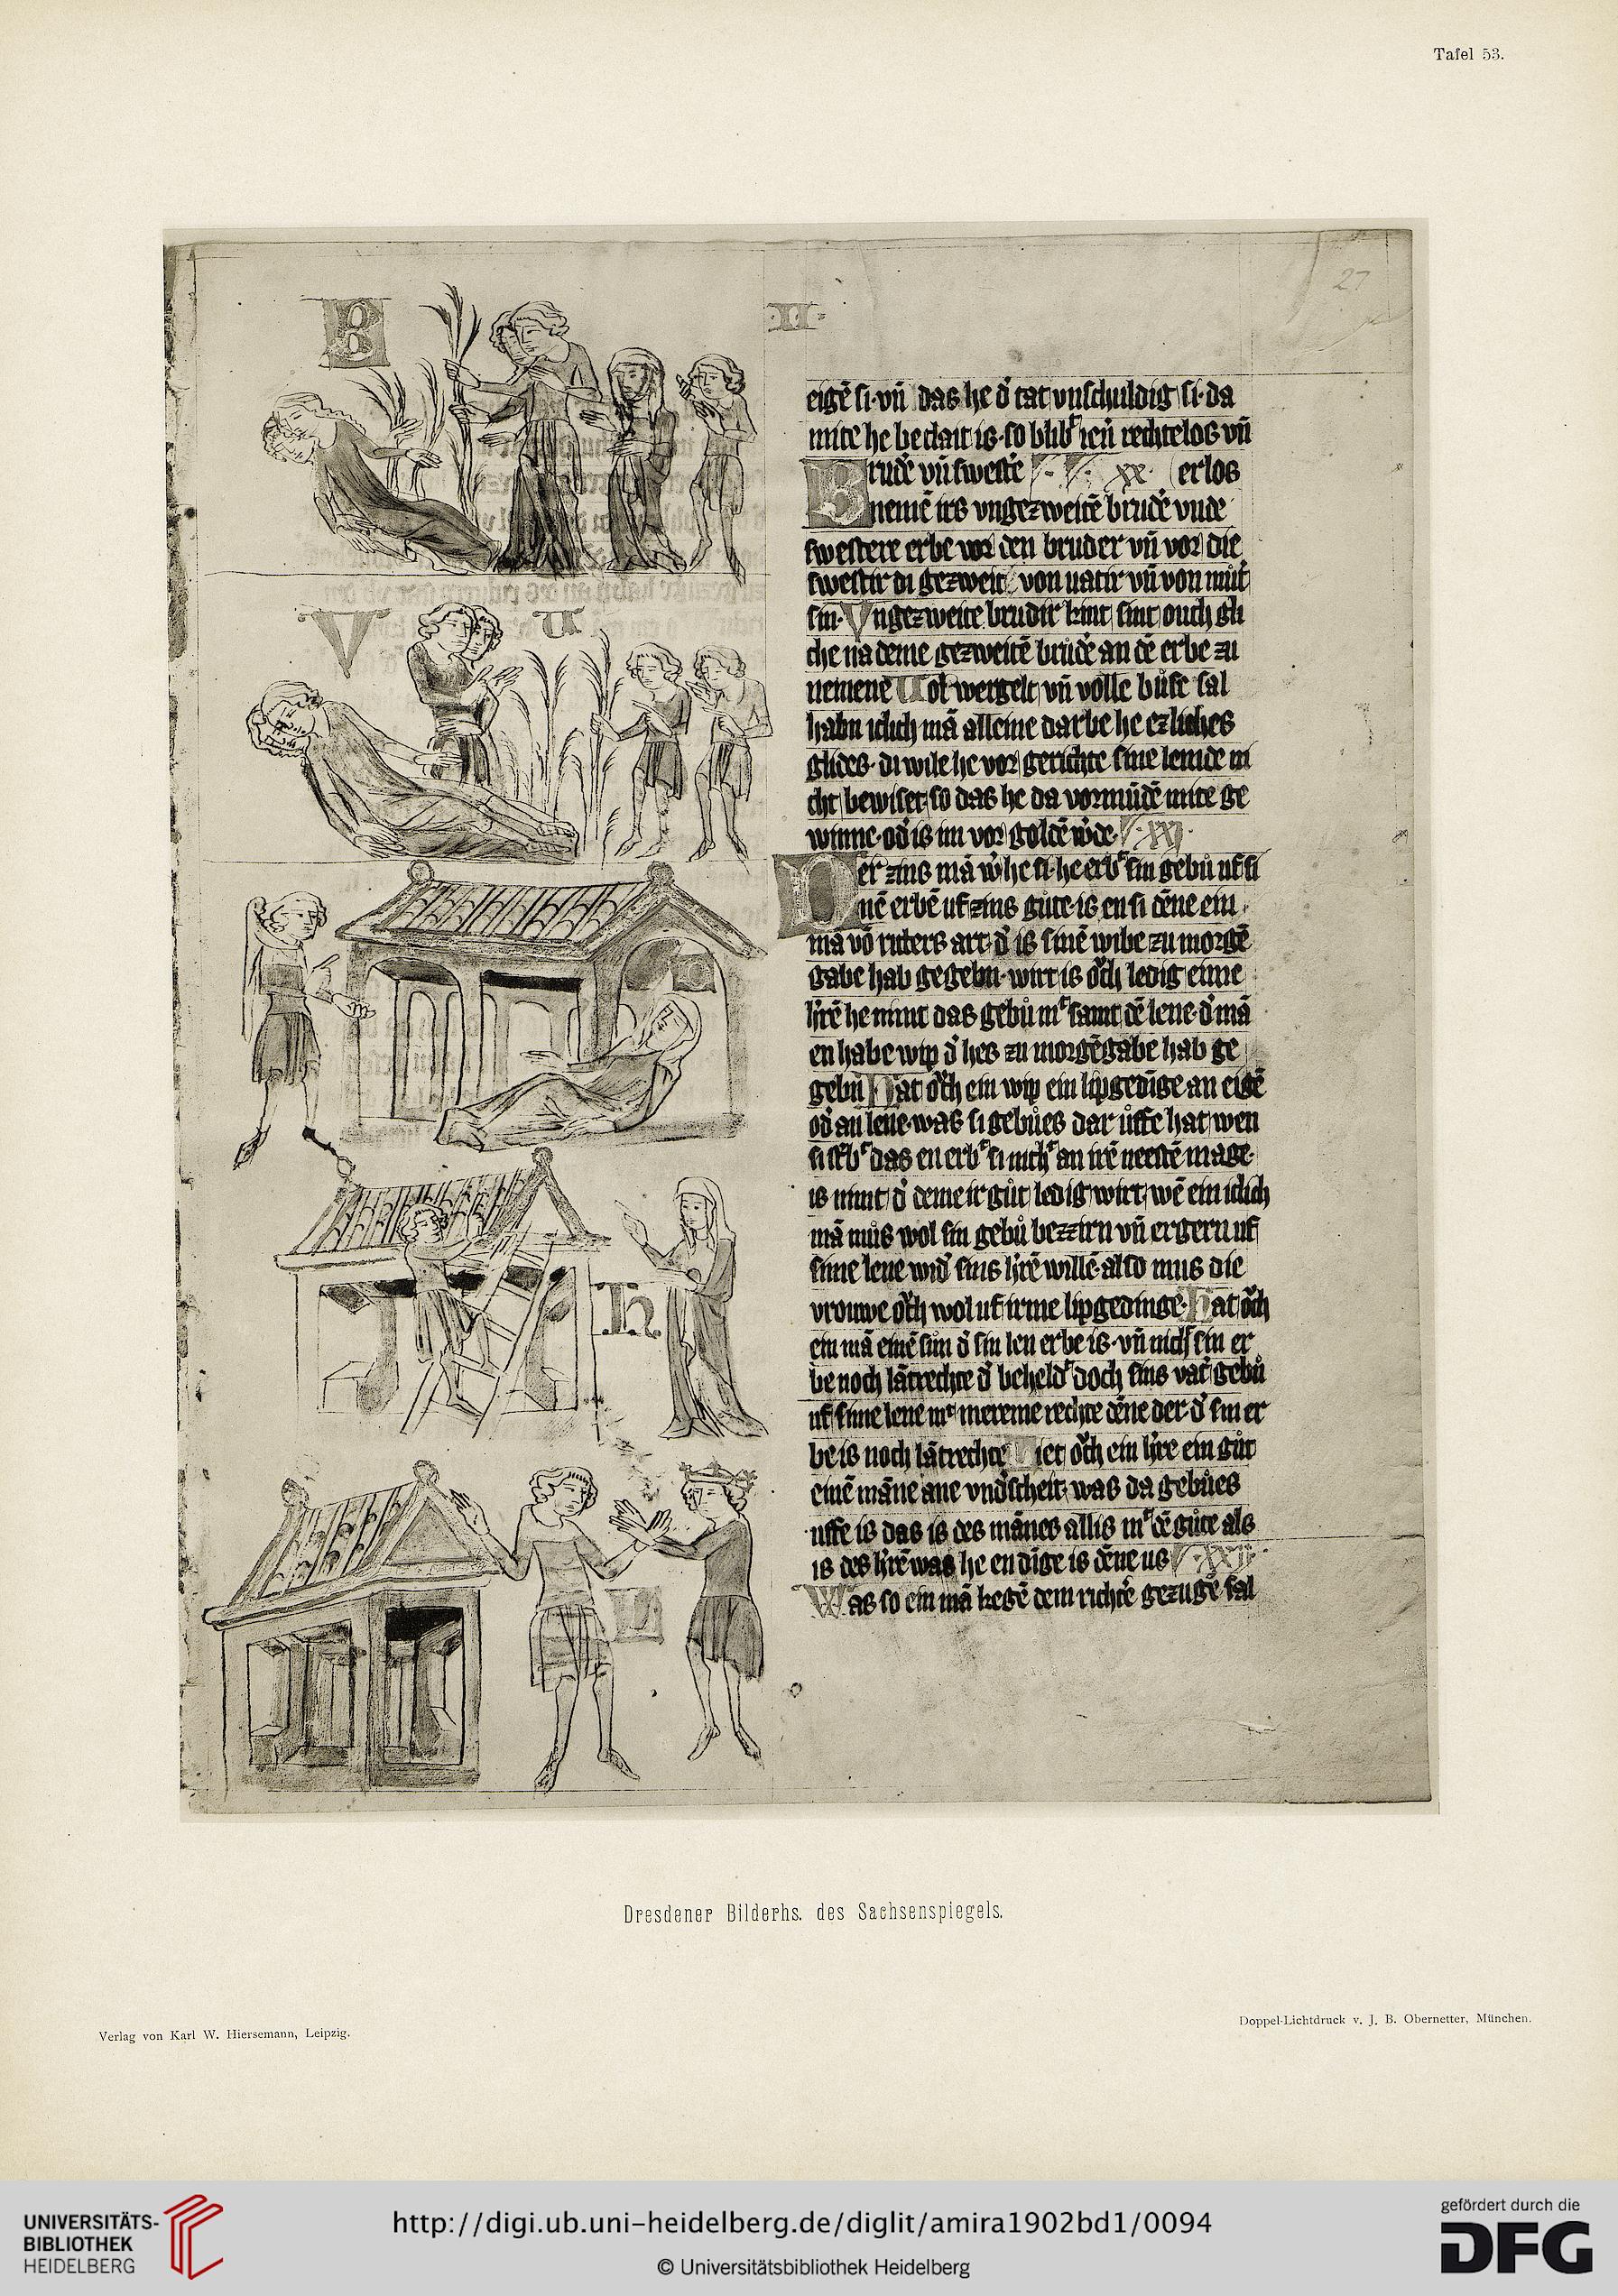 Tafel 53.
27
B
·II·
eigē si· vn̄ das he d' tat vnschuldig si· da
mite he beclait is· so blib' ien̄ rechtelos vn̄
Brud'e vn̄ swest'e xx· erlos
nemē irs vngezweitē brud'e vnde
swestere erbe vor den bruder vn̄ vor die
swestir di gezweit von uatir vn̄ von mut'
sin· Vngezweite brudir kint sint ouch gli
che na deme gezweitē brud'e an dē erbe zu
nemene Uol wergelt vn̄ volle buse sal
habn iclich mā alleine darbe he ezliches
glides· di wile he vor gerichte sine lemde ni
cht bewiset· so das he da vormūdē mite ge
winne· od' is im vor goldē w'de· ·XXI·
Der zins mā w' he si· he erb' sin gebů uf si
nē erbē uf zins gůte· is en si dēne ein
mā vō ritters art· d' is sinē wibe zu morgē
gabe hab gegebn· wirt is och ledig eime
h're he nimt das gebů m' samt dē lene· d' mā
en habe wip d' hes zu morgēgabe hab ge
gebn Hat och ein wip ein lipgedīge an eigē
od' an lene· was si gebůes dar uffe hat wen
si st'b' das en erb' si nich' an irē neestē mage·
is nimt d' deme ir gůt ledig wirt· wē ein iclich
mā mus wol sin gebů bezzirn vn̄ ergern uf
sime lene wid' sins h'rē willē· also mus die
vrouwe och wol uf irme lipgedinge· Hat och
ein mā einē sun d' sin len erbe is· vn̄ nich' sin er
be noch lātrechte d' beheld' doch sins vat' gebů
uf sime lene m' mereme rechte dēne der d' sin er
be is noch lātrechte Liet och ein h're ein gůt
einē māne ane vnd'scheit· was da gebůes
uffe is das is des mānes allis m' dē gůte als
is des h'rē was he en dīge is dēne us ·XXII·
Was so ein mā kegē dem richt'e gezugē sal
V U
D
H
L
Dresdener Bilderhs. des Sachsenspiegels.
Verlag von Karl W. Hiersemann, Leipzig.
Doppel-Lichtdruck v. J. B. Obernetter, München.
UNIVERSITÄTS-
BIBLIOTHEK
HEIDELBERG
http://digi.ub.uni-heidelberg.de/diglit/amira1902bd1/0094
© Universitätsbibliothek Heidelberg
gefördert durch die
DFG